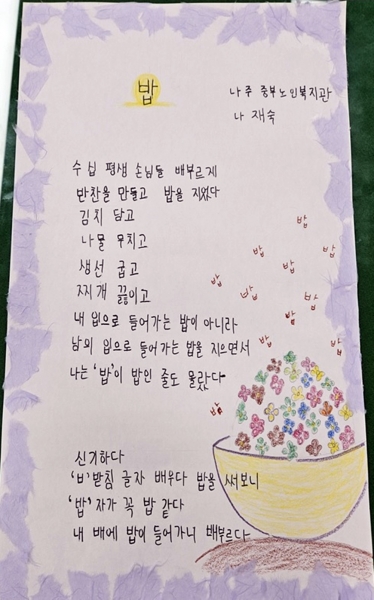 밥
나주 중부노인복지관
나 재숙
수십 평생 손님들 배부르게
반찬을 만들고 밥을 지었다
김치 담고
나물 무치고
생선 굽고
찌개 끓이고
내 입으로 들어가는 밥이 아니라
남의 입으로 들어가는 밥을 지으면서
나는 '밥'이 밥인 줄도 몰랐다
신기하다
'ㅂ'받침 글자 배우다 밥을 써보니
'밥'자가 꼭 밥 같다
내 배에 밥이 들어가니 배부르다
밥
밥
밥
밥
밥
밥
밥
밥
밥
밥
밥